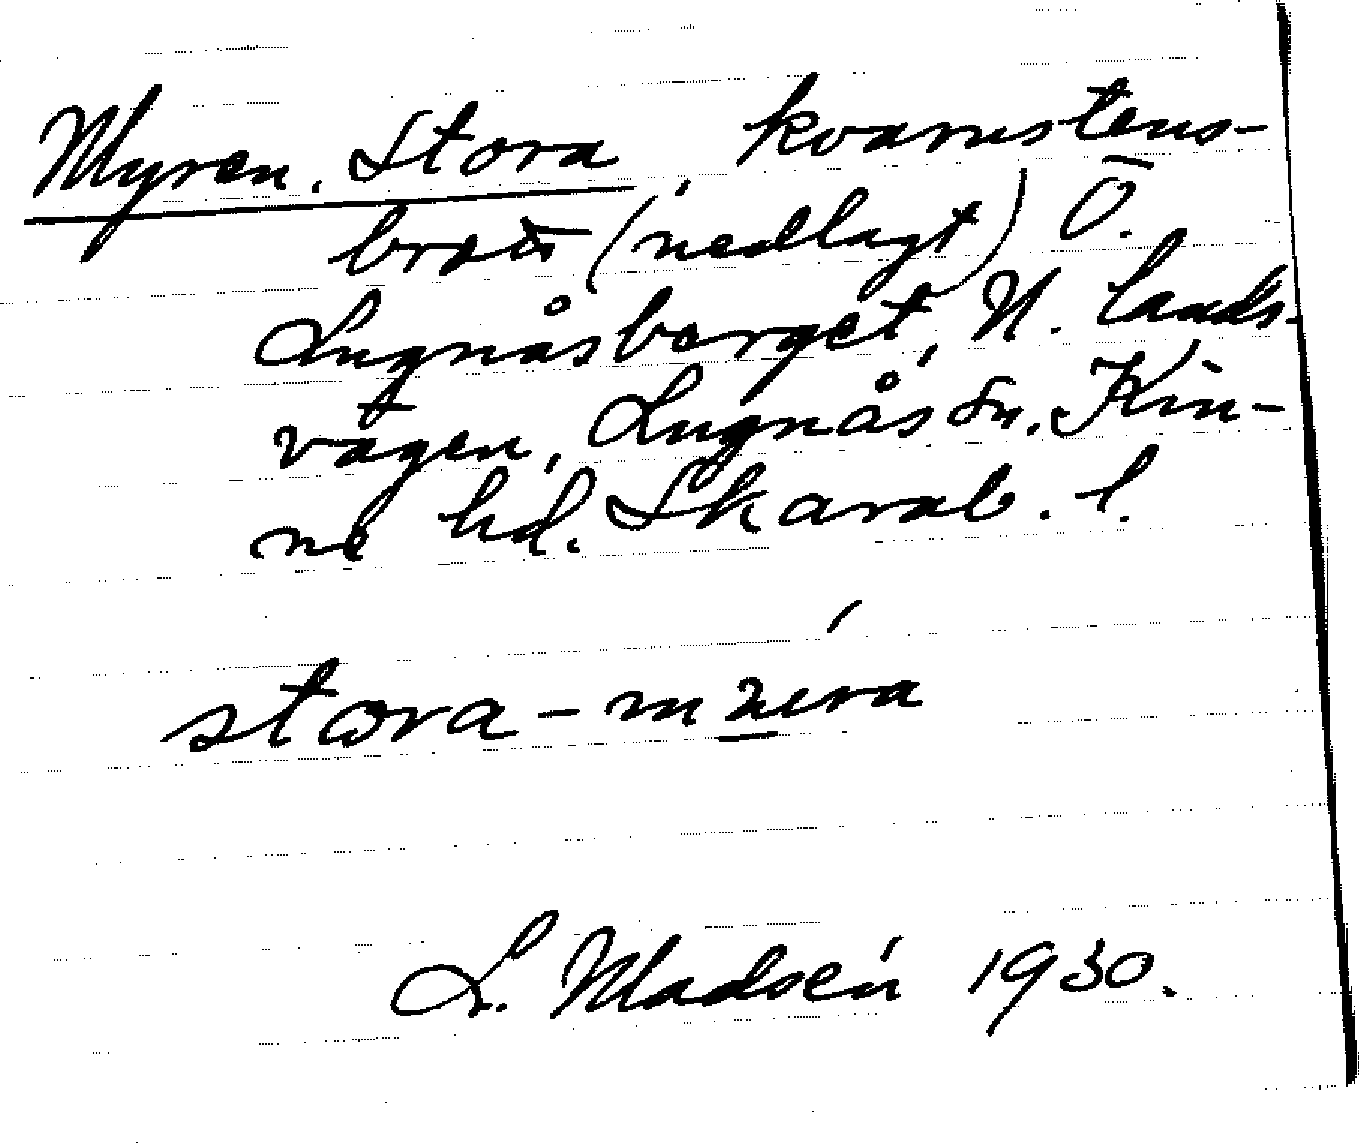 Myren, Stora, kvarnstens-
brott (nedlagt) Ö.
Lugnåsberget, N. lands-
vägen, Lugnås sn. Kin-
ne hd. Skarab. l.
stora-
L. Madsén 1930.